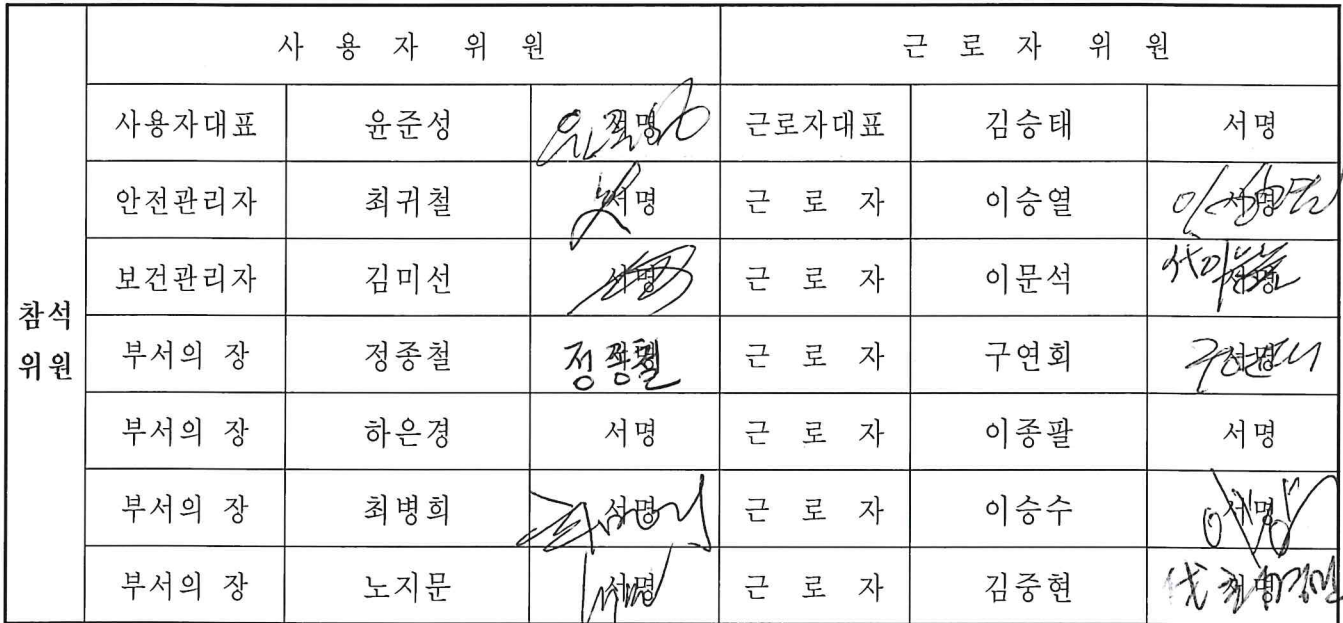 사 용 자 위 원 근 로 자 위 원
사용자대표 윤준성 서명 근로자대표 김승태 서명
안전관리자 최귀철 서명 근 로 자 이승열 서명
보건관리자 김미선 서명 근 로 자 이문석 서명
참석
위원
부서의 장 정종철 정종철 근 로 자 구연회 서명
부서의 장 하은경 서명 근 로 자 이종팔 서명
부서의 장 최병희 서명 근 로 자 이승수 서명
부서의 장 노지문 서명 근 로 자 김중현 서명